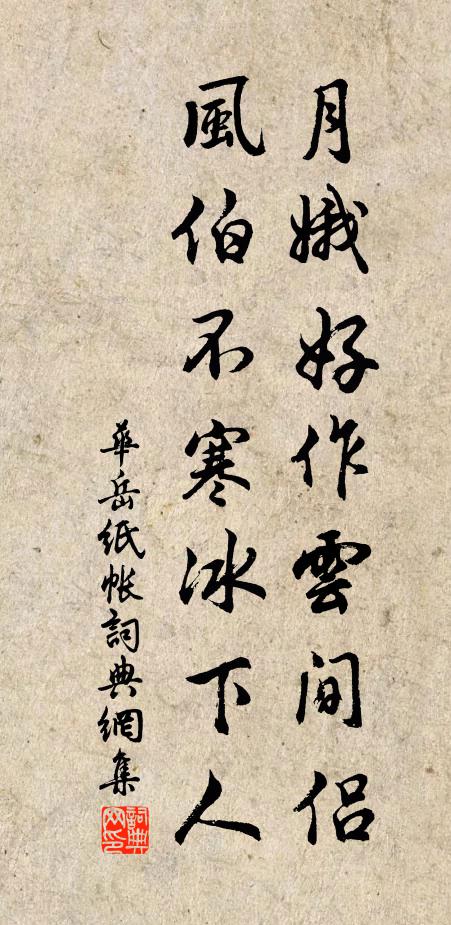 月娥好作雲間侶
風伯不寒冰下人
華岳紙帳詞典網集
詞典網印